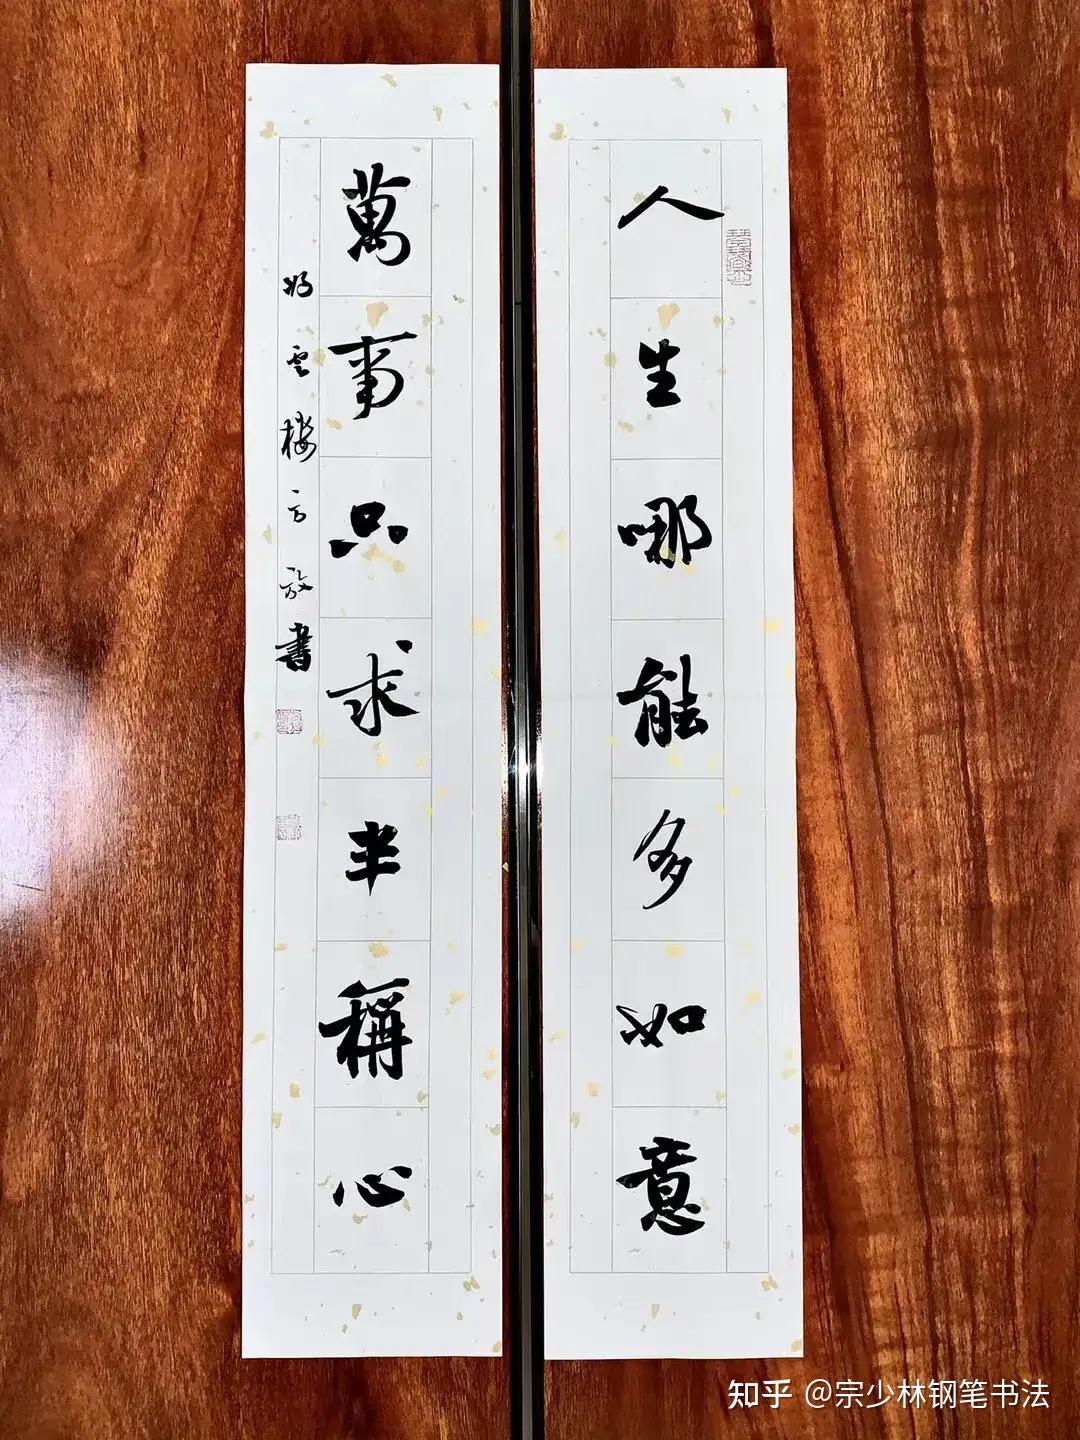 人生哪能多如意
萬事只求半稱心
雲樓方放書
知乎 @宗少林钢笔书法